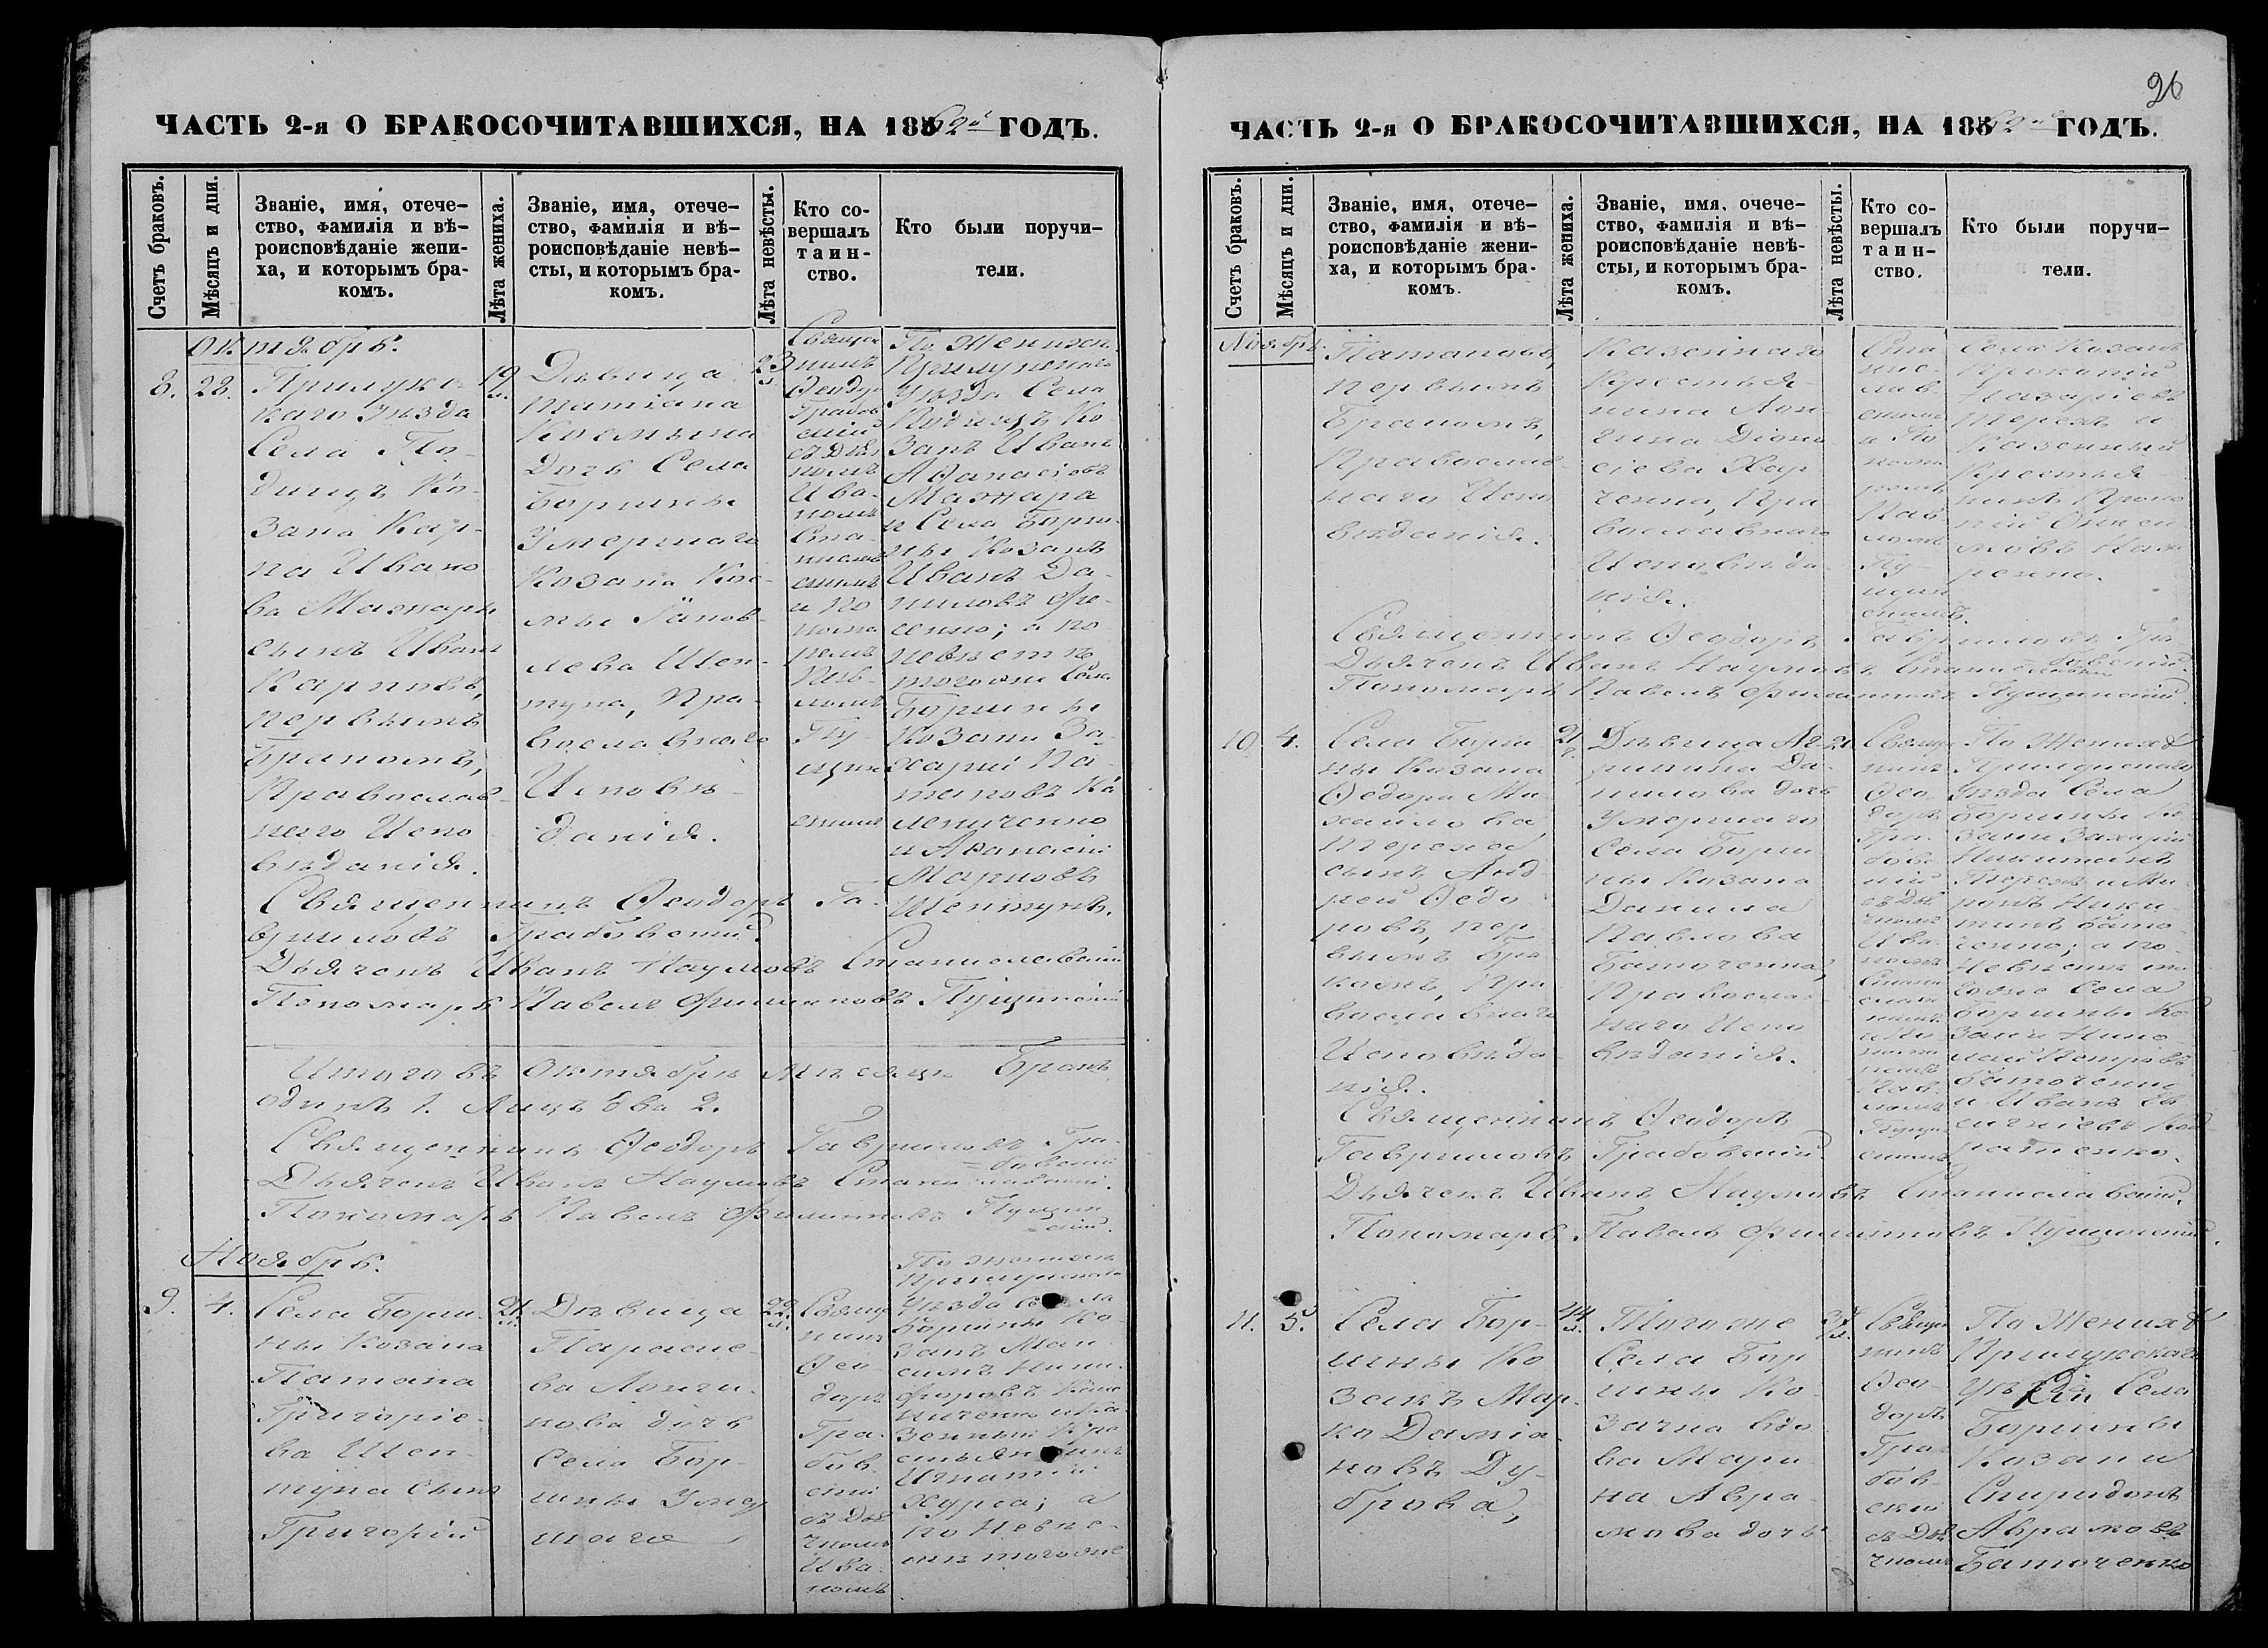 26
ЧАСТЬ 2-я О БРАКОСОЧИТАВШИХСЯ, НА 1862й ГОДЪ.
Счетъ браковъ.
Мѣсяцъ и дни.
Званіе, имя, отече-
ство, фамилія и вѣ-
роисповѣданіе жени-
ха, и которымъ бра-
комъ.
Лѣта жениха.
Званіе, имя, отече-
ство, фамилія и вѣ-
роисповѣданіе невѣ-
сты, и которымъ бра-
комъ.
Лѣта невѣсты.
Кто со-
вершалъ
таин-
ство.
Кто были поручи-
тели.
Октябрь.
8.
28.
Прилуц-
каго Уѣзда
Села По-
дищъ Ко-
зака Кар-
па Ивано
ва Мажары
сынъ Иванъ
Карповъ,
первымъ
бракомъ,
Православ-
наго Испо
вѣданія.
19
л.
Дѣвица
Татіана
Космина
дочь Села
Боршны
Умершаго
Козака Кос-
мы
лева Шеп-
туна, Пра-
вославнаго
Исповѣ-
данія.
23
л.
Священ
никъ
Феодоръ
Грабов
скій
съ Дья
комъ
Ива-
номъ
Ста-
нислав
скимъ
и По
нома
ремъ
Пав-
ломъ
Пу-
щин
скимъ
По Женихѣ
Прилуцкаго
Уѣзда Села
Подищъ Ко-
закъ Иванъ
Афанасіевъ
Мажара
и Села Борш-
ны Козакъ
Иванъ Да-
ниловъ Фе-
сенко; а по
невѣстѣ
тогоже Села
Боршны
Козаки За-
харій По-
таповъ
и Афанасій
Марковъ
Шептунъ.
Священникъ Феодоръ Га-
вриловъ Грабовскій.
Дьячекъ Иванъ Наумовъ Станиславскій
Пономарь Павелъ Филимоновъ Пущинскій
Итого въ Октябрѣ мѣсяцѣ Бракъ
одинъ 1. Лицъ два 2.
Священникъ Феодоръ Гавриловъ Гра-
бовскій
Дьячекъ Иванъ Наумовъ Станиславскій.
Пономарь Павелъ Филимоновъ Пущин
скій.
Ноябрь.
9.
4.
Села Борш-
ны Козака
Патапа
Григоріе-
ва Шеп-
туна сынъ
Григорій
21
л.
Дѣвица
Параске-
ва Логи-
нова дочь
Села Бор-
шны Умер
шаго
22
л.
Священ
никъ
Фео-
доръ
Гра-
бов-
скій
съ Дья
чкомъ
Ива-
номъ
По женихѣ
Прилуцкаго
Уѣзда Села
Боршны Ко-
закъ Мак-
симъ Ники-
форовъ
и Ка
зенный Кре
стьянинъ
Игнатій
Хурса; а
по Невѣс-
тѣ тогоже
ЧАСТЬ 2-я О БРАКОСОЧИТАВШИХСЯ, НА 1862й ГОДЪ.
Счетъ браковъ.
Мѣсяцъ и дни.
Званіе, имя, отече-
ство, фамилія и вѣ-
роисповѣданіе жени-
ха, и которымъ бра-
комъ.
Лѣта жениха.
Званіе, имя, очече-
ство, фамилія и вѣ-
роисповѣданіе невѣ-
сты, и которымъ бра-
комъ.
Лѣта невѣсты.
Кто со-
вершалъ
таин-
ство.
Кто были поручи-
тели.
Ноябрь.
Патаповъ,
первымъ
бракомъ,
Православ-
наго Испо
вѣданія.
Казеннаго
Крестья-
нина Лон-
гина Діони-
сіева Хар
ченка, Пра
вославнаго
Исповѣда-
нія.
Ста
ни-
слав
скимъ
и По
нома
ремъ
Пав
ломъ
Пу-
щин
скимъ.
Села Козакъ
Прокопій
Назаріевъ
Терехъ и
Казенный
Крестья-
нинъ Проко
пій
Хар
ченко.
Священникъ Феодоръ Гавриловъ Гра
бовскій.
Дьячекъ Иванъ Наумовъ Станиславскій
Пономарь Павелъ Филимоновъ Пущинскій.
10.
4.
Села Борш
ны Козака
Федора Ми-
хайлова
Тереха
сынъ Анд-
рей Федо-
ровъ, пер-
вымъ бра
комъ, Пра
вославнаго
Исповѣда-
нія.
21
л.
Дѣвица Аг-
рипина Да-
нилова дочь
Умершаго
Села Борш
ны Козака
Данила
Павлова
Баточенка,
Православ-
наго Испо
вѣданія.
21.
Священ
никъ
Фео-
доръ
Гра-
бовс-
кій
съ Дья
чкомъ
Ива-
номъ
Стани
слав
скимъ
и По
нома
ремъ
Пав-
ломъ
Пущин
скимъ
По Женихѣ
Прилуцкаго
Уѣзда Села
Боршны Ко
заки Захарій
Никитинъ
Терехъ и Ми
ронъ Ники-
тинъ Бато-
ченко; а по
Невѣстѣ то
гоже Села
Боршны Ко
заки Нико-
лай Петровъ
Баточенко
и Иванъ
Священникъ Феодоръ
Гавриловъ Грабовскій.
Дьячекъ Иванъ Наумовъ Станиславскій.
Пономарь Павелъ Филимоновъ Пущинскій.
11.
5.
Села Бор-
шны Ко
закъ Мар-
ко Даміа-
новъ Ду-
брова,
44
л.
Тогоже
Села Бор
шны Ко-
зачка вдо
ва Мари-
на Авра-
мова дочь
37
л.
Священ
никъ
Фео-
доръ
Гра-
бов-
скій
съ Дья
чкомъ
По Женихѣ
Прилуцкаго
Уѣзда Села
Боршны
Козаки
Спиридонъ
Аврамовъ
Баточенко